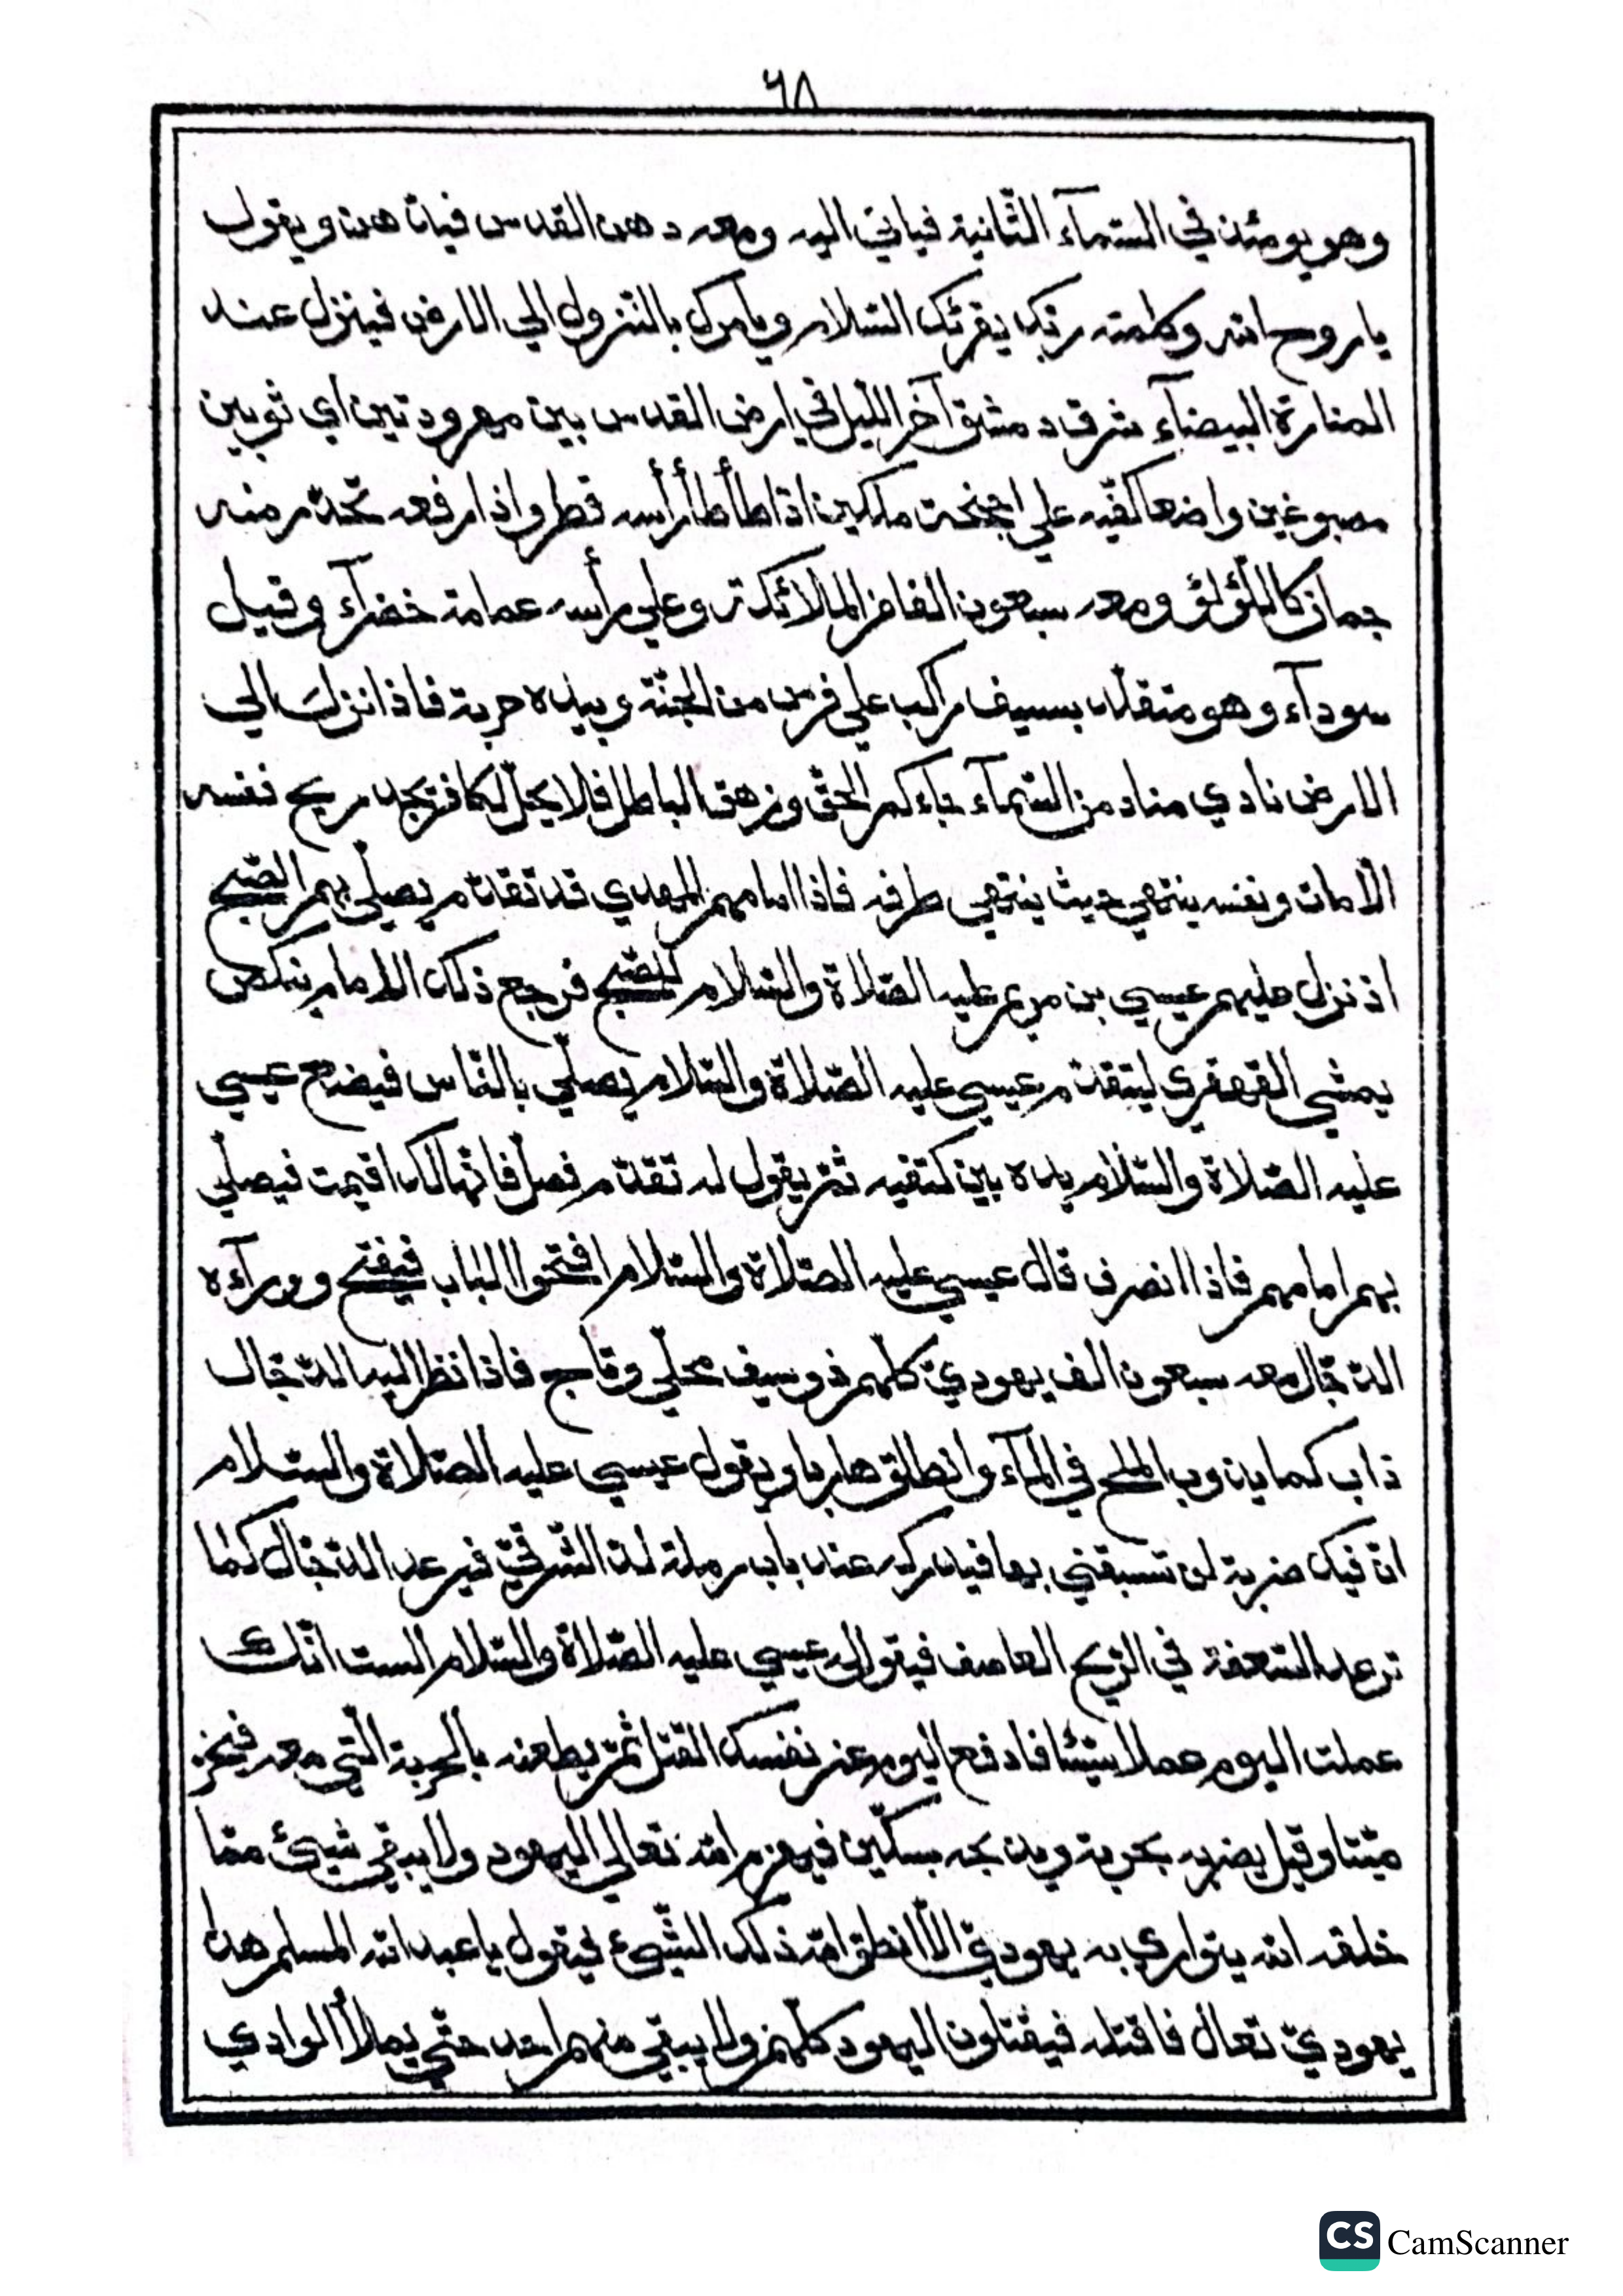 ٦٨
وهو يومئذ في السّمآء الثّانية فياتيَ اليه ومعه دهن القدس فيات هنه ويقول
ياروح الله وكلمته ربّك يقرئك السّلام ويأمرك بالنّزول الي الارض فينزل عند
المنارة البيضآء شرقي دمشق آخر اللّيل في ارض القدس بين مهرودتين اي ثوبين
مصبوغين واضعا كفّيه علي اجنحة ملكين اذا طأطأ رأسه قطر واذا رفعه تحدّر منه
جمان كاللّؤلؤ ومعه سبعون الفا من الملائكة وعلي رأسه عمامة خضرآء وقيل
سودآء وهو متقلّد بسيف راكب علي فرس من الجنّة وبيده حربة فاذا نزل الي
الارض نادي مناد من السّمآء جاءكم الحقّ وزهق الباطل فلا يحلّ لكافر يجد ريح نفسه
الّا مات ونفسه ينتهي حيث ينتهي طرفه فاذا امامهم المهدي قد تقدّم يصلّي بهم الصّبح
اذ نزل عليهم عيسي بن مريم عليه الصّلاة والسّلام للصّبح فرجع ذلك الامام ينكص
يمشي القهقري ليتقدّم عيسي عليه الصّلاة والسّلام يصلّي بالنّاس فيضع عيسي
عليه الصّلاة والسّلام يده بين كتفيه ثمّ يقول له تقدّم فصلّ فانّها لك اقيمت فيصلّي
بهم امامهم فاذا انصرف قال عيسي عليه الصّلاة والسّلام افتحوا الباب فيفتح وورآءه
الدّجّال معه سبعون الف يهوديّ كلّهم ذو سيف محلّي وتاج فاذا نظر اليه الدّجّال
ذاب كما يذوب الملح في المآء وانطلق هاربا ويقول عيسي عليه الصّلاة والسّلام
انّ فيك ضربة لن تسبقني بها فيدركه عند باب رملة لدّ الشّرقيّ فيرعد الدّجّال كما
ترعد السّعفة في الرّيح العاصف فيقول له عيسي عليه الصّلاة والسّلام الست انّك
عملت اليوم عملا سيّئا فادفع اليوم عن نفسك القتل ثمّ يطعنه بالحربة الّتي معه فيخرّ
ميّتا وقيل يضربه بحربة ويذبحه بسكّين فيهزم الله تعالي اليهود ولا يبقي شيئ ممّا
خلقه الله يتواري به يهوديّ الّا انطق الله ذلك الشّيئ فيقول يا عبد الله المسلم هذا
يهوديّ تعال فاقتله فيقتلون اليهود كلّهم ولا يبقي منهم احد حتّي يملأ الوادي
CS CamScanner